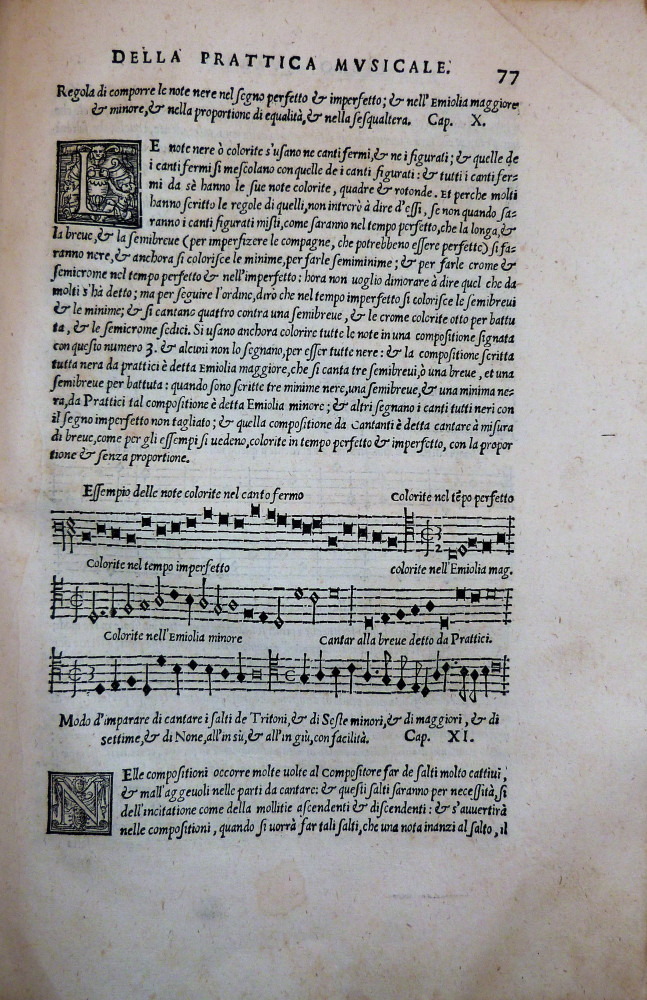 DELLA PRATTICA MVSICALE. 77
Regola di comporre le note nere nel segno perfetto & imperfetto; & nell'Emiolia maggiore
& minore, & nella proportione di equalità, & nella sesqualtera. Cap. X.
LE note nere ò colorite s'usano ne canti fermi, & ne i figurati; & quelle de
i canti fermi si mescolano con quelle de i canti figurati: & tutti i canti fer-
mi da sè hanno le sue note colorite, quadre & rotonde. Et perche molti
hanno scritto le regole di quelli, non intrerò à dire d'essi, se non quando sa-
ranno i canti figurati misti, come saranno nel tempo perfetto, che la longa, &
la breue, & la semibreue (per imperfizere le compagne, che potrebbeno essere perfette) si fa-
ranno nere, & anchora si colorisce le minime, per farle semiminime; & per farle crome &
semicrome nel tempo perfetto & nell'imperfetto: hora non uoglio dimorare à dire quel che da
molti s'hà detto; ma per seguire l'ordine, dirò che nel tempo imperfetto si colorisce le semibreui
& le minime; & si cantano quattro contra una semibreue, & le crome colorite otto per battu
ta, & le semicrome sedici. Si usano anchora colorire tutte le note in una compositione signata
con questo numero 3. & alcuni non lo segnano, per esser tutte nere: & la compositione scritta
tutta nera da prattici è detta Emiolia maggiore, che si canta tre semibreui, ò una breue, et una
semibreue per battuta: quando sono scritte tre minime nere, una semibreue, & una minima ne-
ra, da Prattici tal compositione è detta Emiolia minore; & altri segnano i canti tutti neri con
il segno imperfetto non tagliato; & quella compositione da Cantanti è detta cantare à misura
di breue, come per gli essempi si uedeno, colorite in tempo perfetto & imperfetto, con la propor
tione & senza proportione.
Essempio delle note colorite nel canto fermo Colorite nel tēpo perfetto
Colorite nel tempo imperfetto colorite nell'Emiolia mag.
Colorite nell'Emiolia minore Cantar alla breue detto da Prattici.
Modo d'imparare di cantare i salti de Tritoni, & di Seste minori, & di maggiori, & di
settime, & di None, all'in sù, & all'in giù, con facilità. Cap. XI.
NElle compositioni occorre molte uolte al Compositore far de salti molto cattiui,
& mall'aggeuoli nelle parti da cantare: & questi salti saranno per necessità, si
dell'incitatione come della mollitie ascendenti & discendenti: & s'auuertirà
nelle compositioni, quando si uorrà far tali salti, che una nota inanzi al salto, il